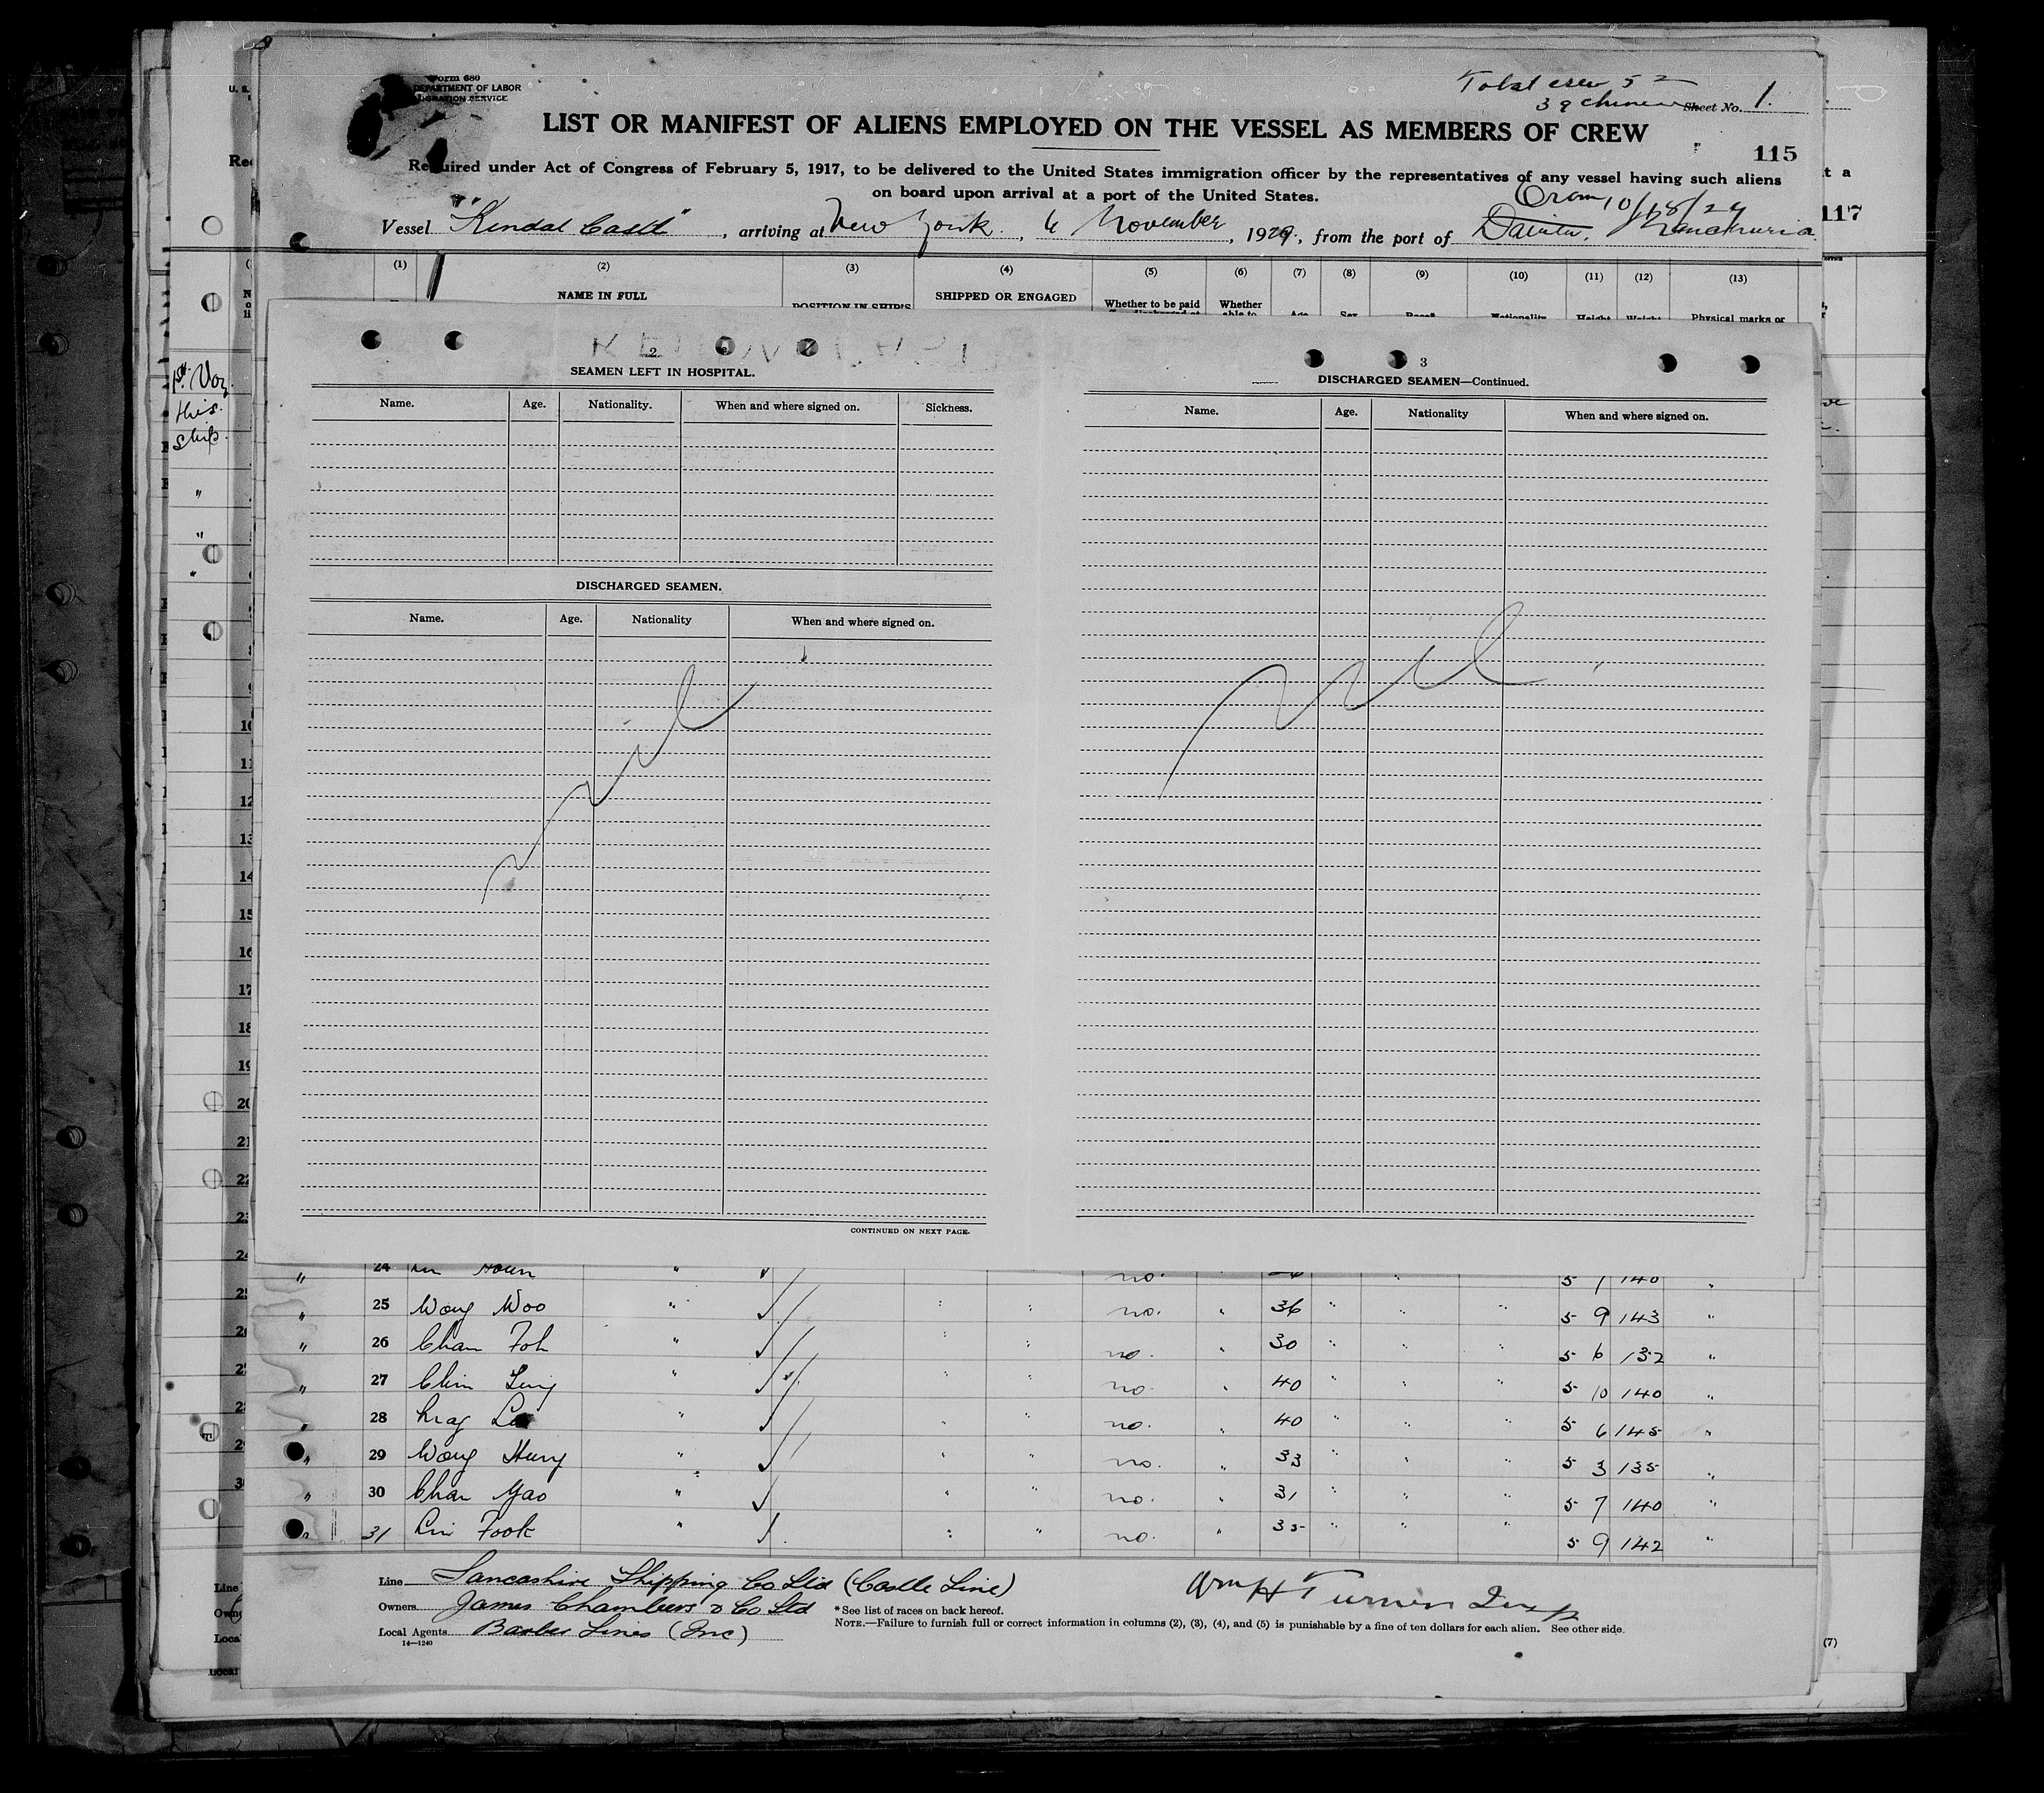 Form 680
DEPARTMENT OF LABOR
IMMIGRATION SERVICE
U. S.
Total crew 52
39 Chinese
Sheet No. 1.
LIST OR MANIFEST OF ALIENS EMPLOYED ON THE VESSEL AS MEMBERS OF CREW
115
Required under Act of Congress of February 5, 1917, to be delivered to the United States immigration officer by the representatives of any vessel having such aliens
on board upon arrival at a port of the United States.
117
10/18/29
Vessel "Kendal Castle", arriving at New York, 6 November, 1929, from the port of Manchuria
(1) (2) (3) (4) (5) (6) (7) (8) (9) (10) (11) (12) (13)
NAME IN FULL POSITION IN SHIP'S SHIPPED OR ENGAGED Whether to be paid Whether able to Age Sex Race* Nationality Height Weight Physical marks or
1st Voy.
this
ship.
2
SEAMEN LEFT IN HOSPITAL.
Name. Age. Nationality. When and where signed on. Sickness.
DISCHARGED SEAMEN.
Name. Age. Nationality When and where signed on.
nil
CONTINUED ON NEXT PAGE.
3
DISCHARGED SEAMEN—Continued.
Name. Age. Nationality When and where signed on.
nil
24 " " no. " 5 7 140 "
25 Wong Woo " " " no. " 36 " " " 5 9 143 "
26 Chan Foh " " no. " 30 " " " 5 6 132 "
27 Chin Ling " " " no. " 40 " " " 5 10 140 "
28 " " " no. " 40 " " " 5 6 145 "
29 Wong Hung " " " no. " 33 " " " 5 3 135 "
30 Chan Yao " " " no. " 31 " " " 5 7 140 "
31 Lin Fook " " " no. " 35 " " " 5 9 142 "
Line Lancashire Shipping Co Ltd (Castle Line)
Owners James Chambers & Co Ltd
Local Agents Barber Lines (Inc)
14—1240
Wm H Turner Insp
* See list of races on back hereof.
NOTE.—Failure to furnish full or correct information in columns (2), (3), (4), and (5) is punishable by a fine of ten dollars for each alien. See other side.
(7)